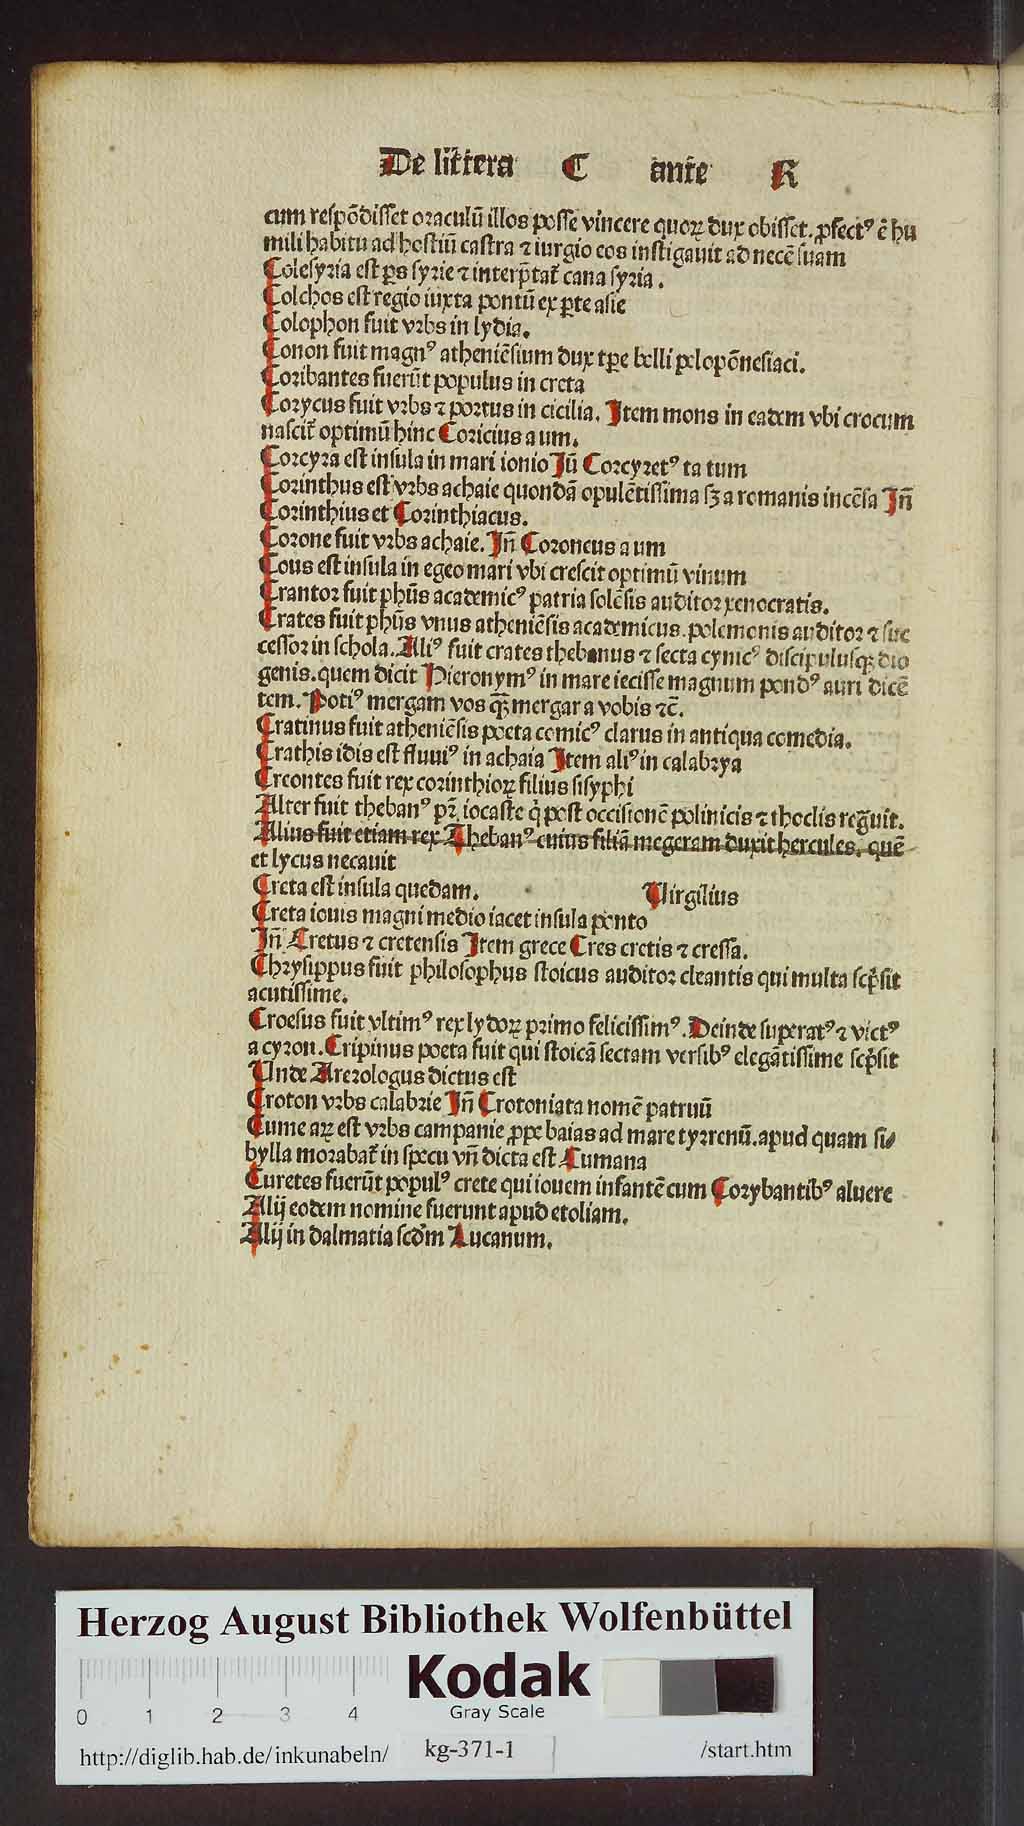 De littera C ante R
cum respōdisset oraculū illos posse vincere quoꝝ dux obisset. ꝓfectꝰ ē hu
mili habitu ad hostiū castra ⁊ iurgio eos instigauit ad necē suam
Colesyria est ꝑs syrie ⁊ interp̄tat̄ cana syria.
Colchos est regio iuxta pontū ex ꝑte asie
Colophon fuit vrbs in lydia.
Conon fuit magnꝰ atheniēsium dux tꝑe belli pelopōnesiaci.
Coribantes fuerūt populus in creta
Corycus fuit vrbs ⁊ portus in cicilia. Item mons in eadem vbi crocum
nascit̄ optimū hinc Coricius a um.
Corcyra est insula in mari ionio Iū Corcyretꝰ ta tum
Corinthus est vrbs achaie quondā opulētissima sꝫ a romanis incēsa Iñ
Corinthius et Corinthiacus.
Corone fuit vrbs achaie. Iñ Coroneus a um
Cous est insula in egeo mari vbi crescit optimū vinum
Crantor fuit ph̄us academicꝰ patria solēsis auditor xenocratis.
Crates fuit ph̄us vnus atheniēsis academicus. polemonis auditor ⁊ suc
cessor in schola. Aliꝰ fuit crates thebanus ⁊ secta cynicꝰ discipulusqꝫ dio
genis. quem dicit Hieronymꝰ in mare iecisse magnum pondꝰ auri dicē
tem. Potiꝰ mergam vos qꝫ̄ mergar a vobis ⁊c̄.
Cratinus fuit atheniēsis poeta comicꝰ clarus in antiqua comedia.
Crathis idis est fluuiꝰ in achaia Item aliꝰ in calabrya
Creontes fuit rex corinthioꝝ filius sisyphi
Alter fuit thebanꝰ pr̄ iocaste q̇ post occisionē polinicis ⁊ thoclis reg̃uit.
Alius fuit etiam rex Thebanꝰ cuius filiā megeram duxit hercules. quē
et lycus necauit
Creta est insula quedam. Virgilius
Creta iouis magni medio iacet insula ponto
Iñ Cretus ⁊ cretensis Item grece Cres cretis ⁊ cressa.
Chrysippus fuit philosophus stoicus auditor cleantis qui multa scp̄sit
acutissime.
Croesus fuit vltimꝰ rex lydoꝝ primo felicissimꝰ. Deinde superatꝰ ⁊ victꝰ
a cyron. Cripinus poeta fuit qui stoicā sectam versibꝰ elegātissime scp̄sit
Unde Arerologus dictus est
Croton vrbs calabrie Iñ Crotoniata nomē patruū
Cume aꝝ est vrbs campanie ꝓpe baias ad mare tyrrenū. apud quam si⸗
bylla morabat̄ in specu vñ dicta est Cumana
Curetes fuerūt populꝰ crete qui iouem infantē cum Corybantibꝰ aluere
Alij eodem nomine fuerunt apud etoliam.
Alij in dalmatia scd̄m Lucanum.
Herzog August Bibliothek Wolfenbüttel
Kodak
Gray Scale
0 1 2 3 4
http://diglib.hab.de/inkunabeln/ kg-371-1 /start.htm